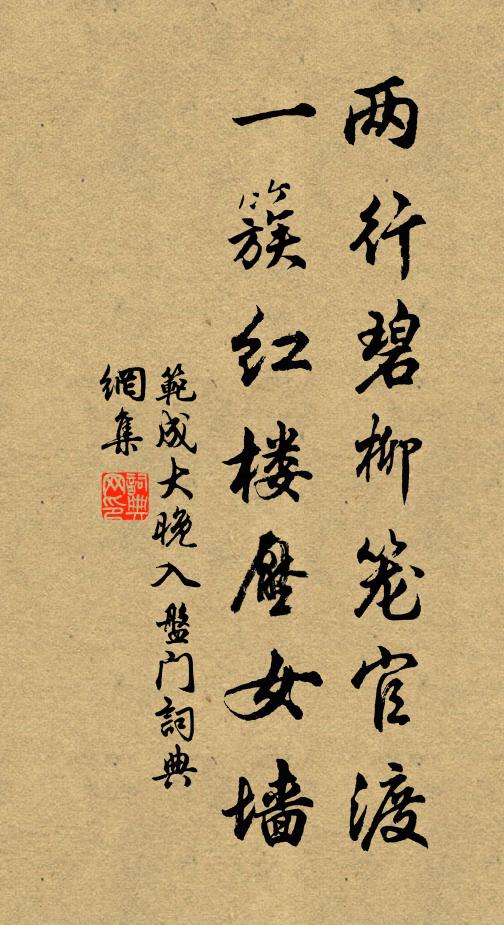 两行碧柳笼官渡
一簇红楼压女墙
範成大晚入盤门詞典
網集
詞典
网印